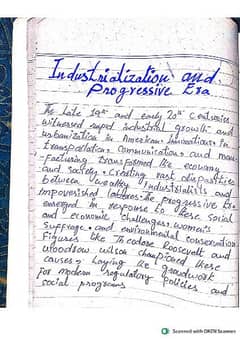 Industrialization and
Progressive Era
The late 19th and early 20th centuries
witnessed rapid industrial growth and
urbanization in America. Innovations in
transportation, communication, and manu
-facturing transformed the economy
and society, creating vast disparities
between wealthy industrialists and
impoverished laborers. The progressive Era
emerged in response to these social
and economic challenges, women's
suffrage, and environmental conservation
Figures like Theodore Roosevelt and
Woodrow Wilson championed these
causes, laying the groundwork
for modern regulatory policies and
social programs
Scanned with OKEN Scanner